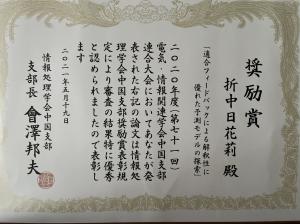 奨励賞
折中日花莉 殿
「適合フィードバックによる解釈性に
優れた予測モデルの探索」
二〇二〇年度(第七十一回)
電気・情報関連学会中国支部
連合大会においてあなたが発
表された右記の論文は情報処
理学会中国支部奨励賞表彰規
定により審査の結果特に優秀
と認められましたので表彰し
ます
二〇二一年五月十九日
情報処理学会中国支部
支部長 會澤邦夫